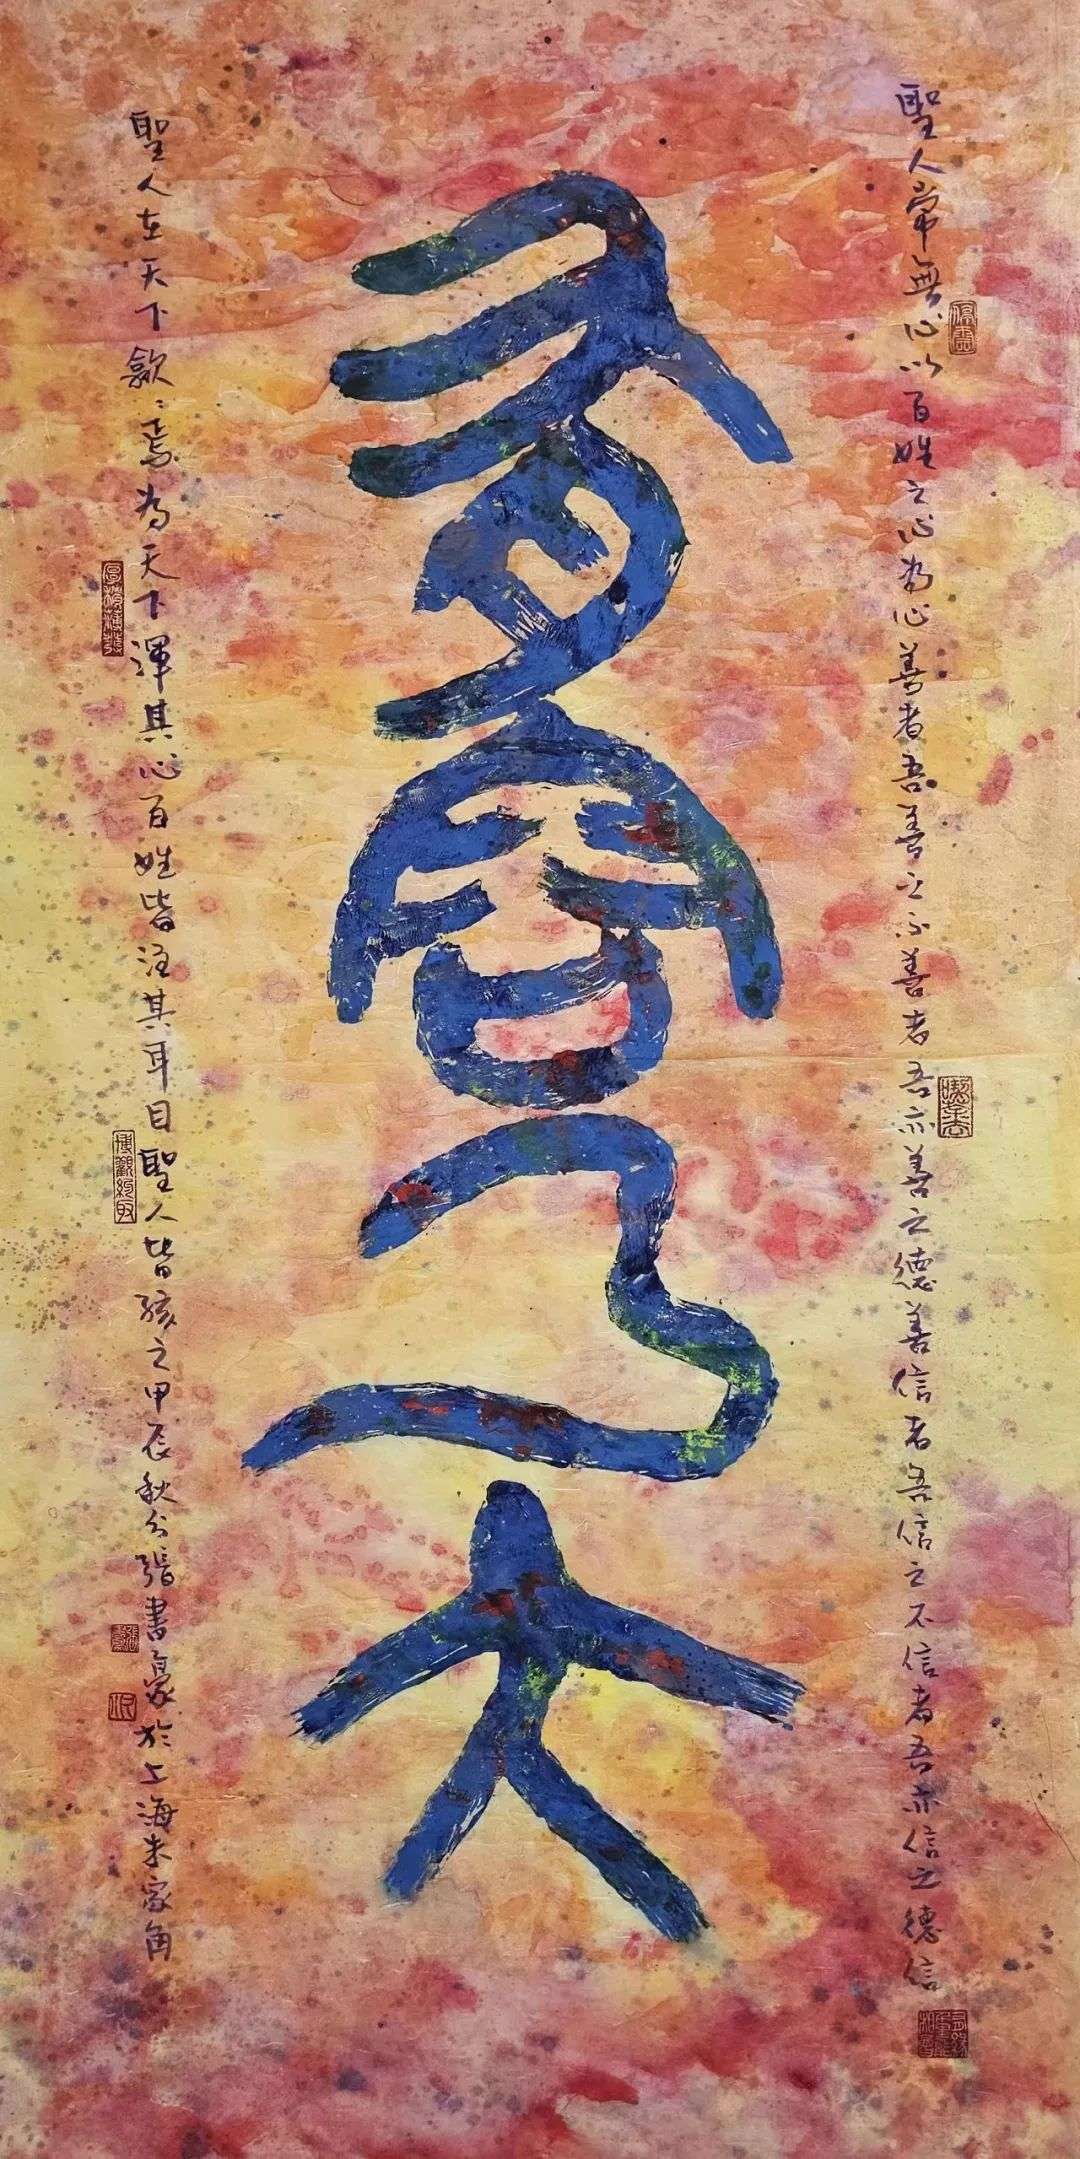 聖人常無心以百姓之心為心善者吾善之不善者吾亦善之德善信者吾信之不信者吾亦信之德信
有容乃大
聖人在天下歙〻焉為天下渾其心百姓皆注其耳目聖人皆孩之甲辰秋分張書豪於上海朱家角
厚積薄發
博觀約取